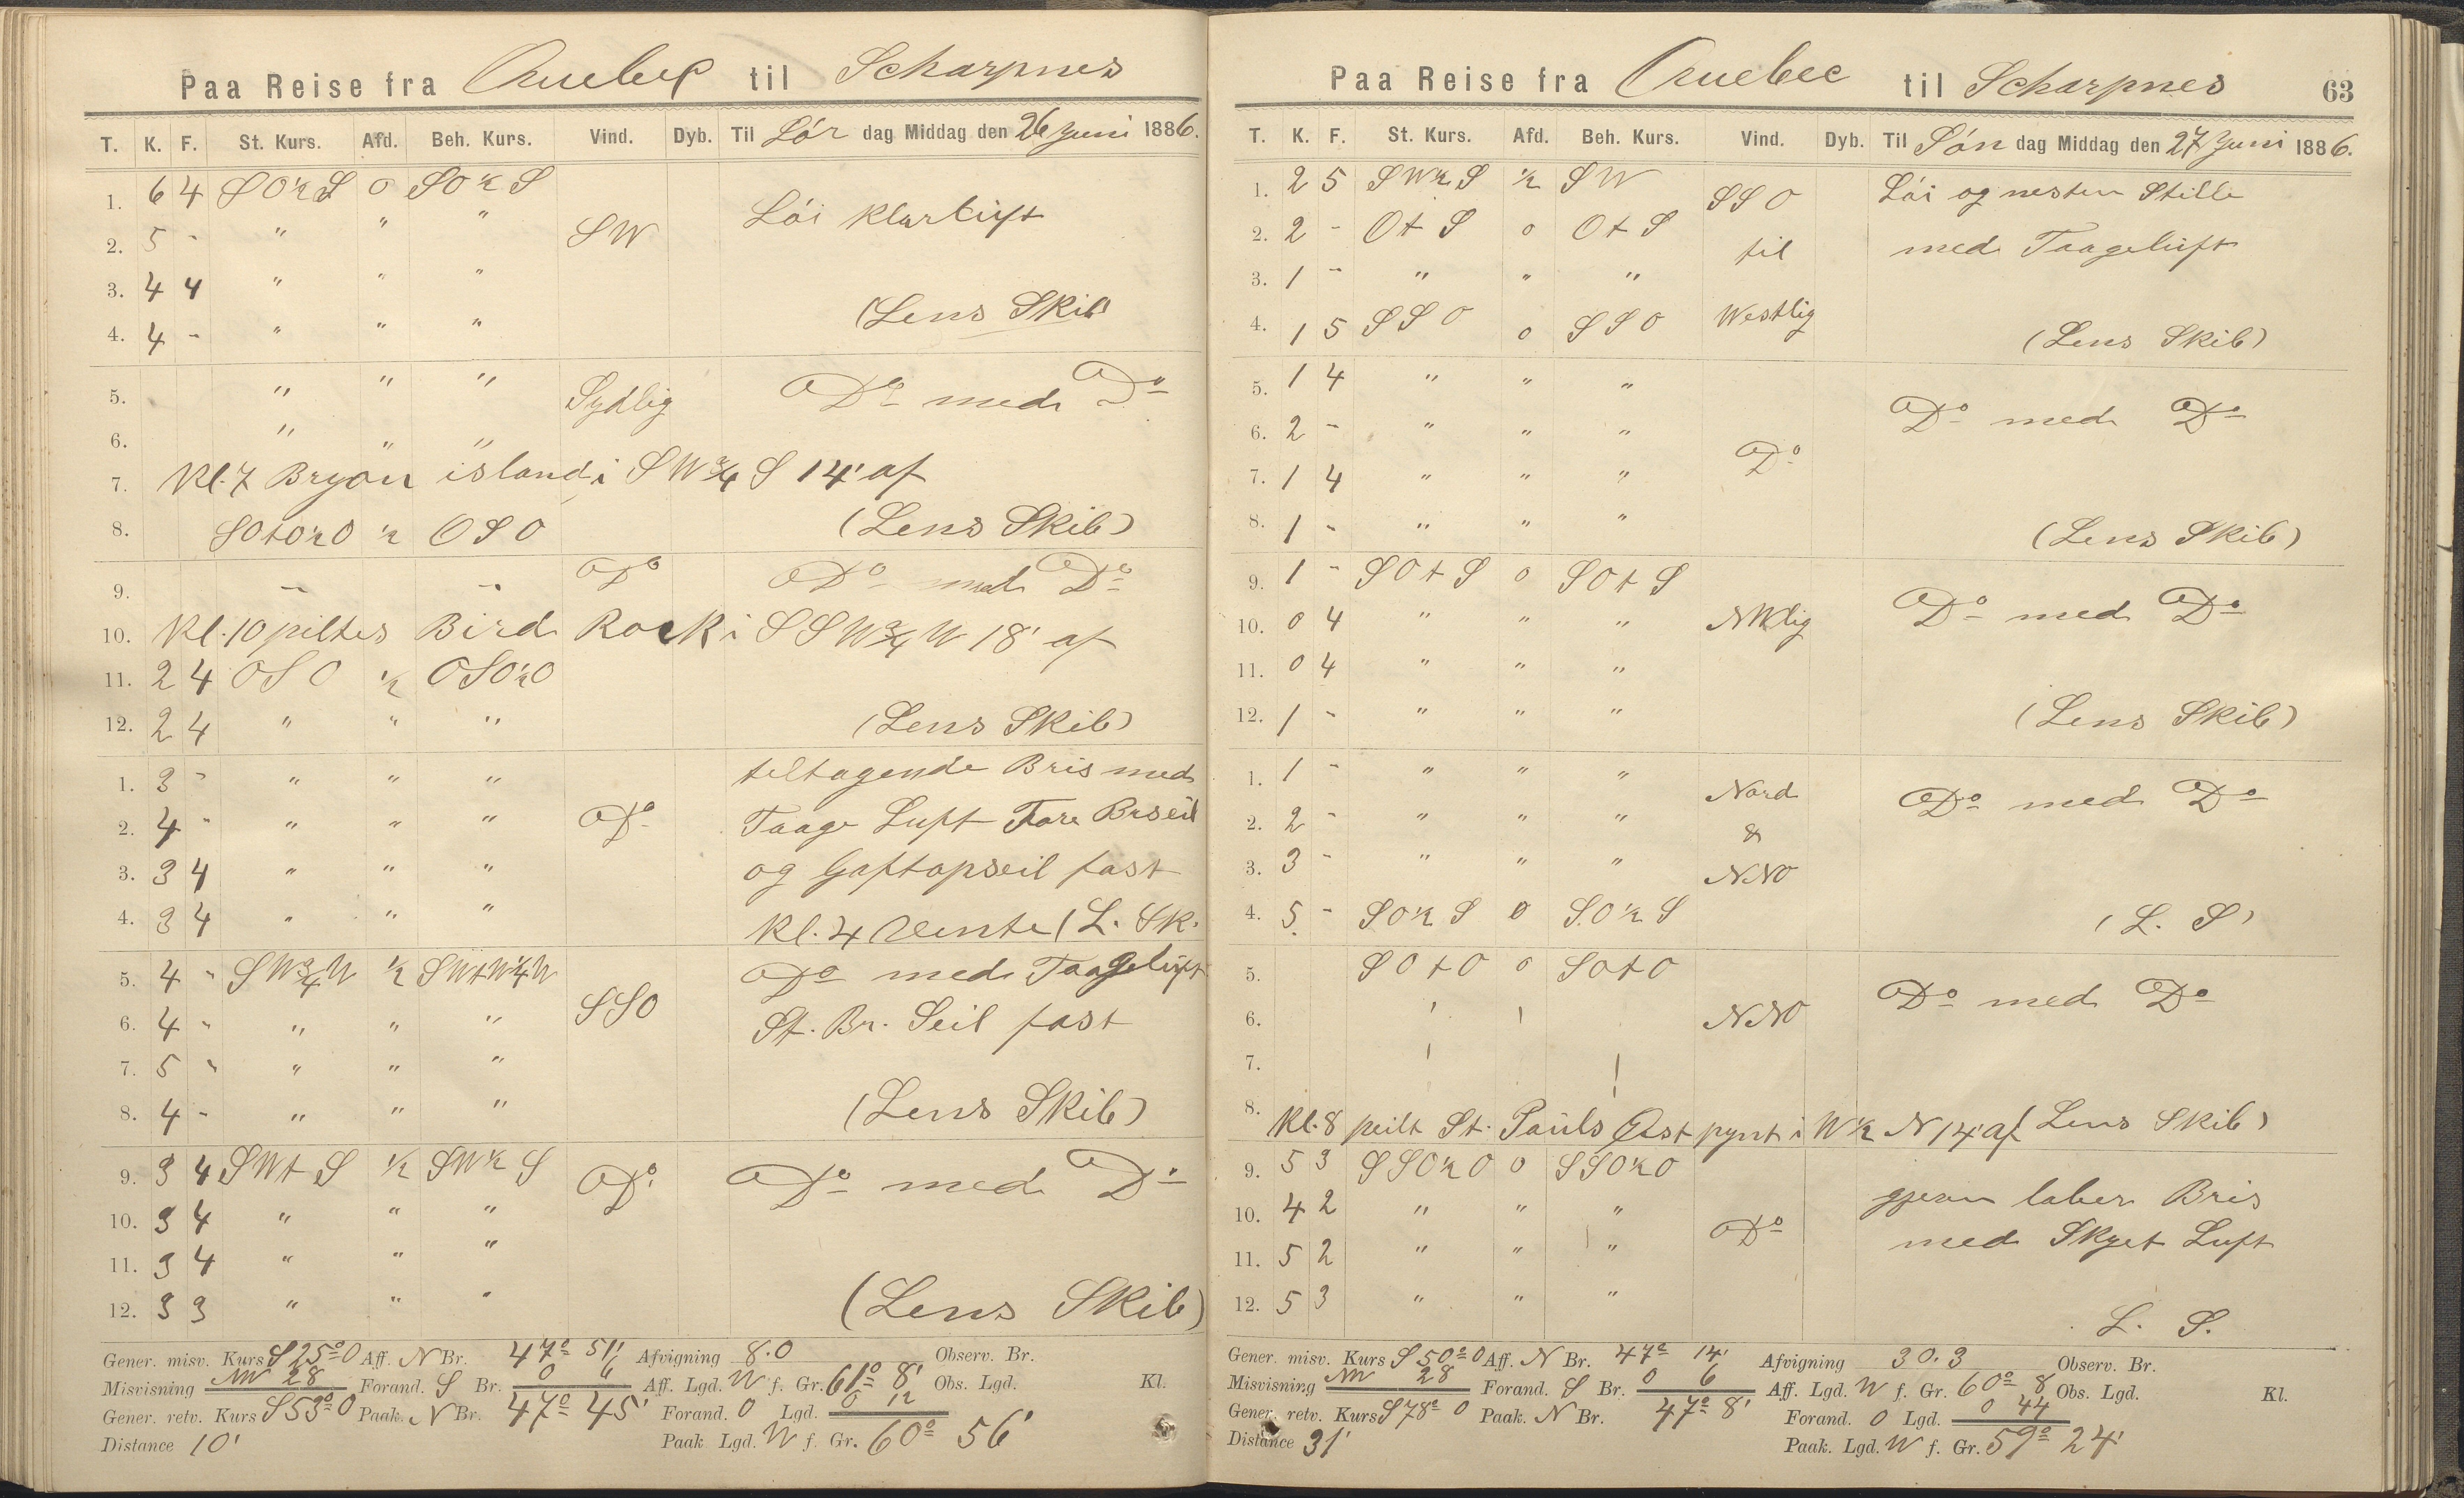 Paa Reise fra Quebec til Scharpnes
T. K. F. St. Kurs. Afd. Beh. Kurs. Vind. Dyb. Til Lör dag Middag den 26 Juni 1886.
1. 6 4 SO½S 0 SO½S
2. 5 - " " " SW Löi klar Luft
3. 4 4 " " "
4. 4 - " " " (Lens Skib)
5. " " " Sydlig Do med Do
6. " " "
7. Kl. 7 Bryon island i SW¾S 14' af
8. SOtO½O ½ OSO (Lens Skib)
9. - - Do Do med Do
10. Kl. 10 piltes Bird Rock i SSW¾W 18' af
11. 2 4 OSO ½ OSO½O
12. 2 4 " " " (Lens Skib)
1. 3 - " " " tiltagende Bris med
2. 4 - " " " Do Taage Luft Fore Br seil
3. 3 4 " " " og Gaftopseil fast
4. 3 4 " " " Kl. 4 Vente (L. Sk.
5. 4 - SW¾W ½ SWtW¼W Do med Taageluft
6. 4 - " " " SSO St. Br. Seil fast
7. 5 - " " "
8. 4 - " " " (Lens Skib)
9. 3 4 SWtS ½ SW½S Do Do med Do
10. 3 4 " " "
11. 3 4 " " "
12. 3 3 " " " (Lens Skib)
Gener. misv. Kurs S 25° O Aff. N Br. 47° 51' Afvigning 8.0 Observ. Br.
Misvisning NW 28 Forand. S Br. 0 6 Aff. Lgd. W f. Gr. 61° 8' Obs. Lgd. Kl.
Gener. retv. Kurs S 53° O Paak. N Br. 47° 45' Forand. O Lgd. 0 12
Distance 10' Paak Lgd. W f. Gr. 60° 56'
Paa Reise fra Quebec til Scharpnes 63
T. K. F. St. Kurs. Afd. Beh. Kurs. Vind. Dyb. Til Sön dag Middag den 27 Juni 1886.
1. 2 5 SW½S ½ SW SSO Löi og nesten Stille
2. 2 - OtS 0 OtS til med Taageluft
3. 1 - " " "
4. 1 5 SSO 0 SSO Westlig (Lens Skib)
5. 1 4 " " "
6. 2 - " " " Do med Do
7. 1 4 " " " Do
8. 1 - " " " (Lens Skib)
9. 1 - SOtS 0 SOtS
10. 0 4 " " " NWlig Do med Do
11. 0 4 " " "
12. 1 - " " " (Lens Skib)
1. 1 - " " " Nord Do med Do
2. 2 - " " " &
3. 3 - " " " NNO
4. 5 - SO½S 0 SO½S (L. S)
5. SOtO 0 SOtO
6. NNO Do med Do
7.
8. Kl. 8 peilt St. Pauls Ostpynt i W½N 14' af (Lens Skib)
9. 5 3 SSO½O 0 SSO½O
10. 4 2 " " " Do gjevn laber Bris
11. 5 2 " " " med Skyet Luft
12. 5 3 " " " L. S.
Gener. misv. Kurs S 50° O Aff. N Br. 47° 14' Afvigning 30.3 Observ. Br.
Misvisning NW 28 Forand. S Br. 0 6 Aff. Lgd. W f. Gr. 60° 8 Obs. Lgd. Kl.
Gener. retv. Kurs S 78° O Paak. N Br. 47° 8' Forand. O Lgd. 0 44
Distance 31' Paak. Lgd. W f. Gr. 59° 24'